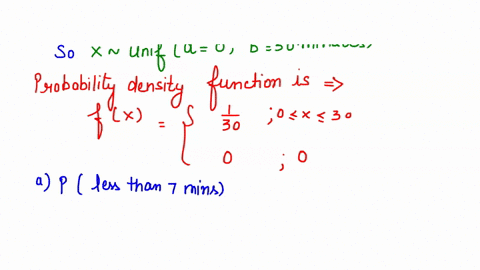 So X ~ Unif (a = 0, B = 30 minutes)
Probobility density function is =>
f(x) = { 1/30 ; 0 ≤ x ≤ 30
0 ; 0
a) P ( less than 7 mins)